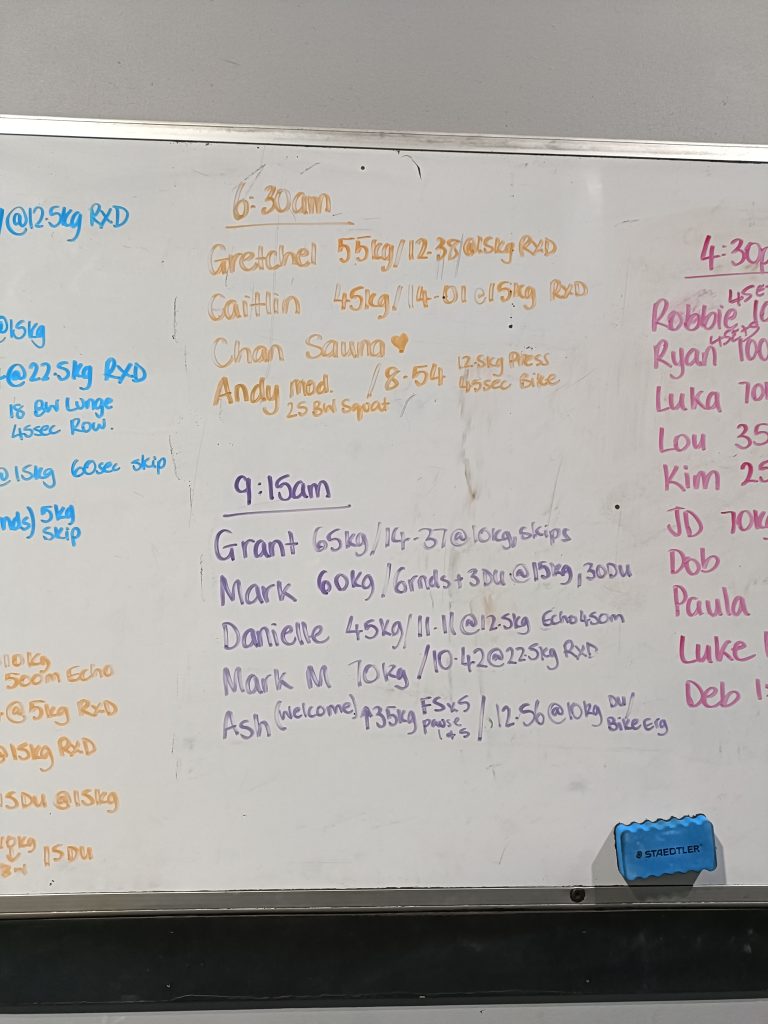 @12.5kg RXD
@15kg
@22.5kg RXD
18 BW Lunge
45sec Row.
@15kg 60sec skip
nds) 5kg
skip
10kg
500m Echo
@5kg RXD
@15kg RXD
15DU @15kg
15DU
6:30am
Gretchel 55kg/12.38@15kg RXD
Caitlin 45kg/14-01@15kg RXD
Chan Sauna♥
Andy mod. /8.54 12.5kg Press
25 BW Squat 45sec Bike
9:15am
Grant 65kg/14-37@10kg, skips
Mark 60kg/6rnds+3DU@15kg, 30DU
Danielle 45kg/11.11@12.5kg Echo450m
Mark M 70kg/10.42@22.5kg RXD
Ash (Welcome) ↑35kg FSx5 pause 1+5 /, 12.56@10kg DU/ BikeErg
4:30p
Robbie 4SE 10
Ryan 4Sets 100
Luka 70k
Lou 35
Kim 25
JD 70kg
Dob
Paula
Luke
Deb 1
STAEDTLER